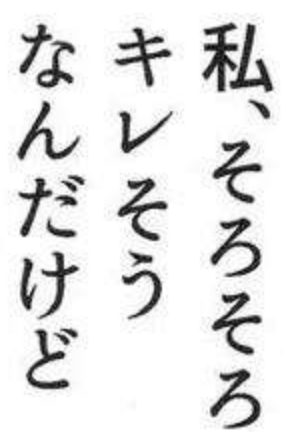 私、そろそろ
キレそう
なんだけど